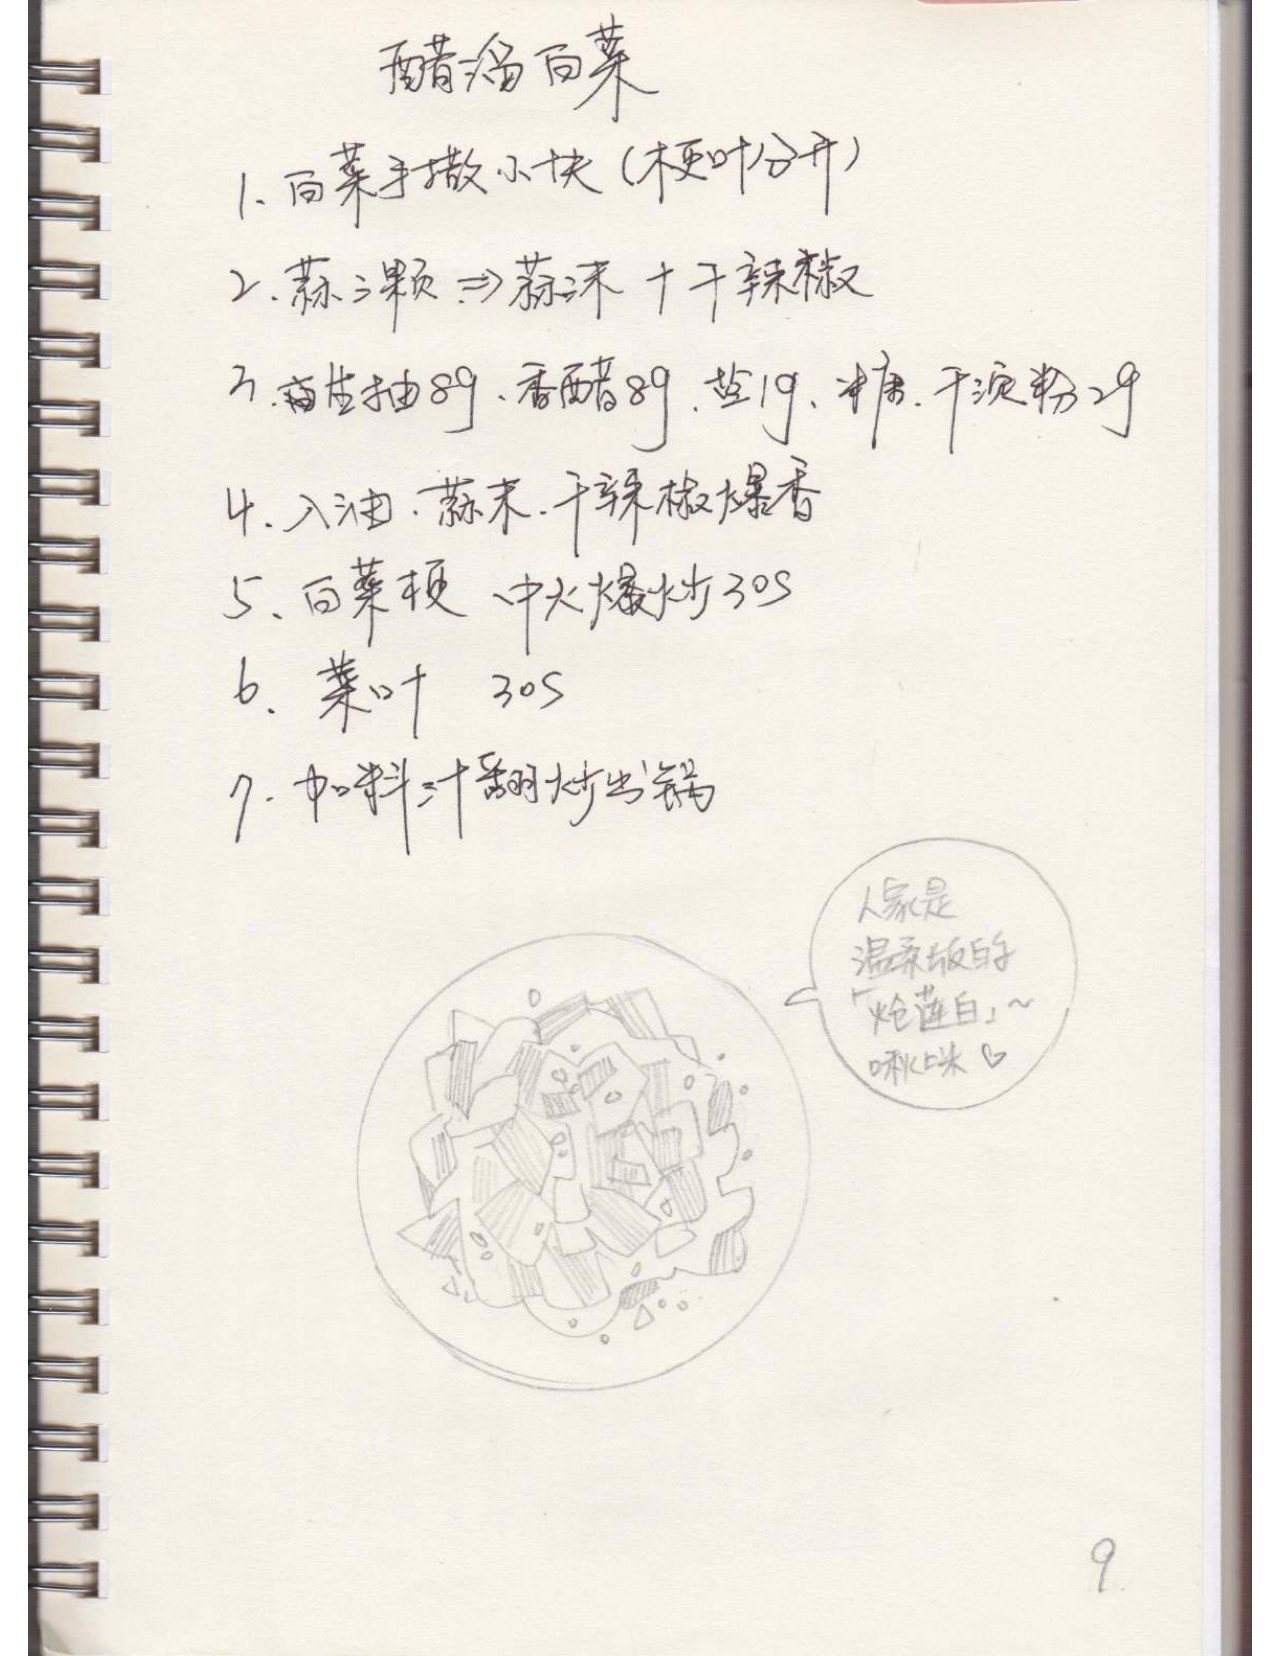 醋溜白菜
1. 白菜手撒小块(梗叶分开)
2. 蒜3颗⇒蒜沫+干辣椒
3. 生抽8g、香醋8g、盐1g、糖、干淀粉2g
4. 入油、蒜末、干辣椒爆香
5. 白菜梗 中火爆炒30S
6. 菜叶 30S
7. 加料汁翻炒出锅
人家是
温柔版的
「炝莲白」~
啾咪♡
9